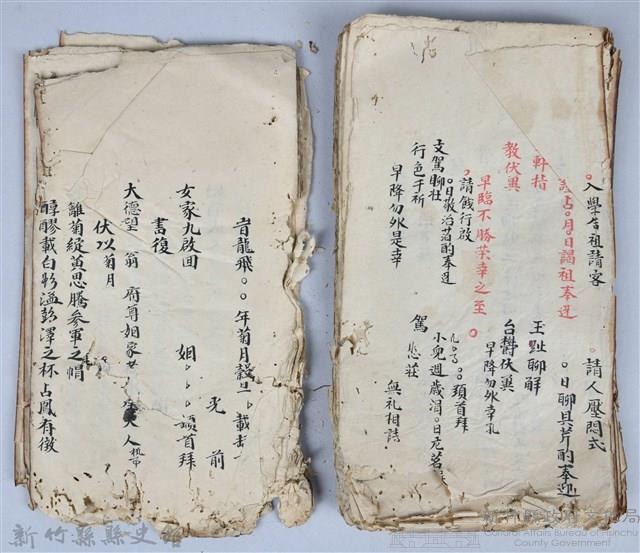 入學告祖請客
月。日謁祖奉迓
軒
教伏輿
早臨不勝荣幸之至
請餞行啟
。日敬治茗酌奉迓
文駕聊壮
行色于祈
早降勿外是幸
請人壓悶式
。日聊具芹酌奉迎
玉趾聊解
台鬱伏輿
早降勿外幸孔
頓首拜
小兒週歲涓。日
駕
無礼相請
旹龍飛。。年菊月穀旦、載拜
光前
女家九啟回 姻、、、頓首拜
書復
大德望 翁 府尊姻家 人
伏以菊月
籬菊綻黃思騰參軍之帽
醇醪載白影溢彭澤之杯占鳳有徵
新竹縣縣史館
新竹縣政府文化局
Cultural Affairs Bureau of Hsinchu
County Government